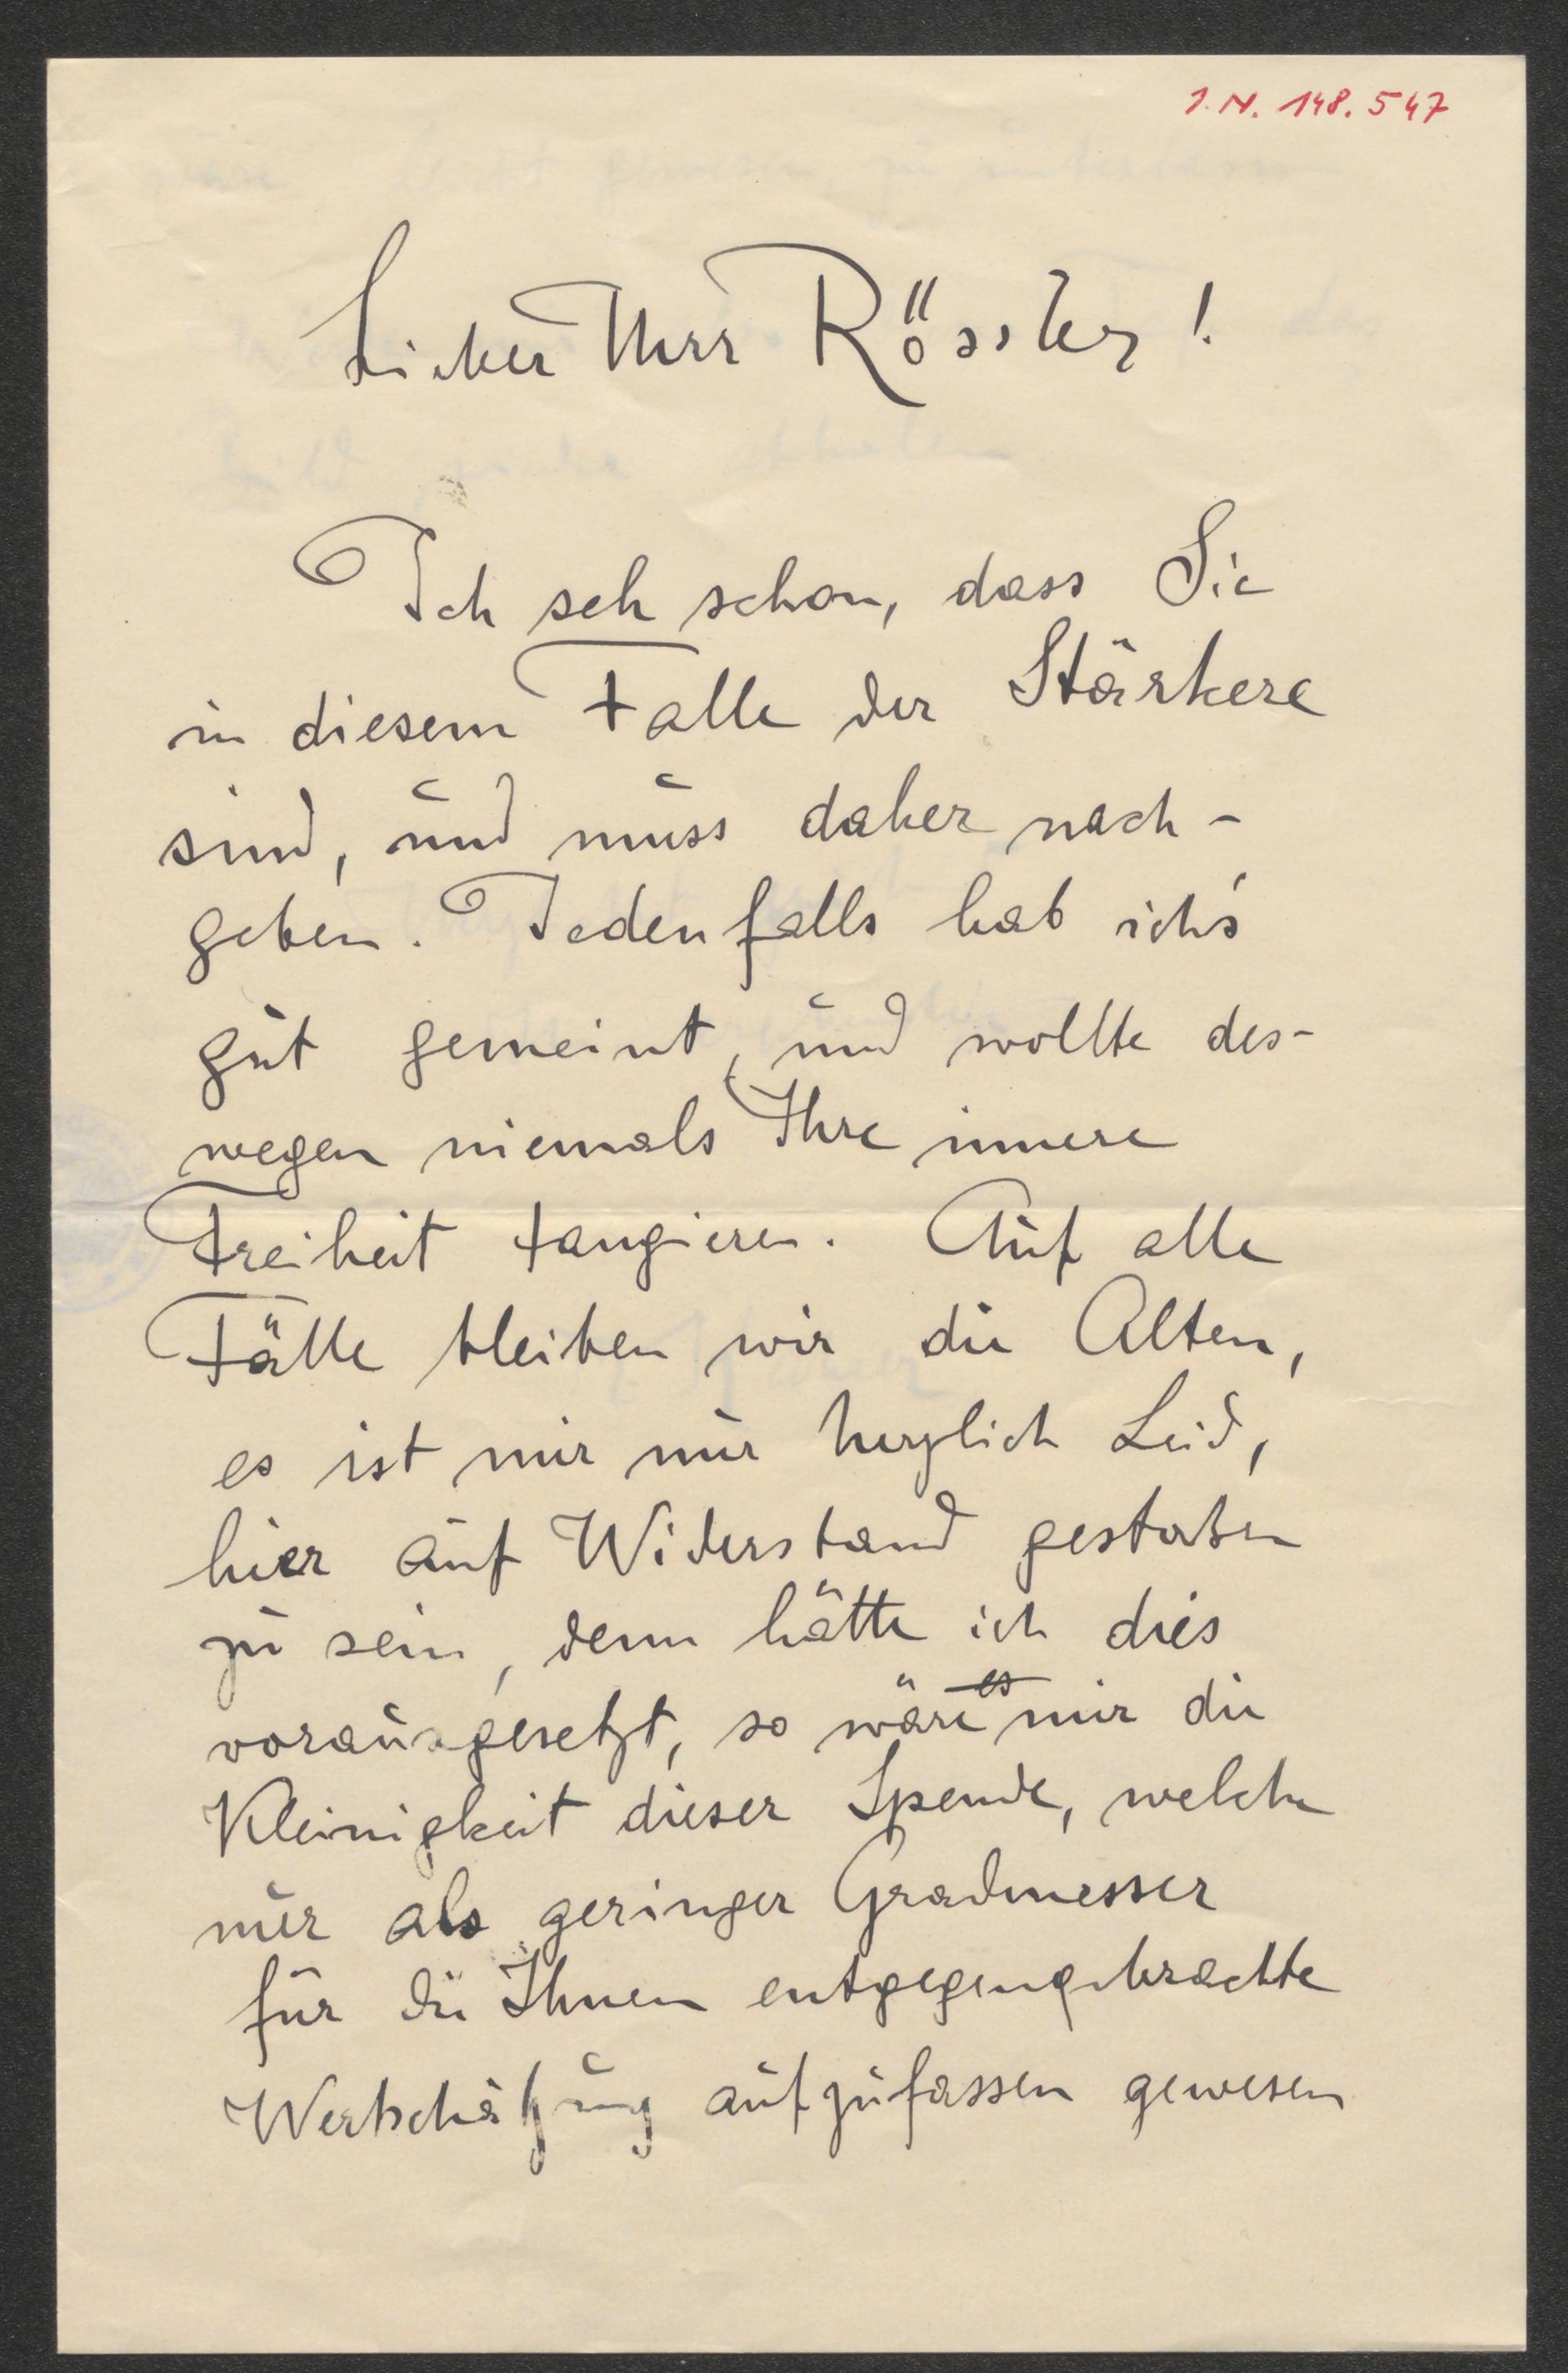 I.N. 148.547
Lieber Herr Rössler!
Ich seh schon, dass Sie
in diesem Falle der Stärkere
sind, und muss daher nach-
geben. Jedenfalls hab ich's
gut gemeint, und wollte des-
wegen niemals Ihre innere
Freiheit tangieren. Auf alle
Fälle bleiben wir die Alten,
es ist mir nur herzlich Leid,
hier auf Widerstand gestoßen
zu sein, denn hätte ich dies
vorausgesetzt, so wäre es mir die
Kleinigkeit dieser Spende, welche
nur als geringer Gradmesser
für die Ihnen entgegengebrachte
Wertschätzung aufzufassen gewesen